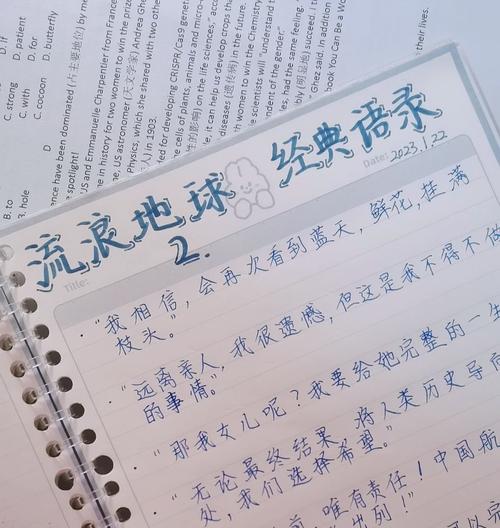 流浪地球 经典语录
2.
Title:
Date: 2023.1.22
·“我相信，会再次看到蓝天，鲜花，挂满
枝头。”
·“远离亲人，我很遗憾，但这是我不得不做
的事情。”
·“那我女儿呢？我要给她完整的一生
·“无论最终结果，将人类历史导向
处，我们选择希望。”
唯有责任！中国航
出列！”
D. if
D. patient
D. for
D. butterfly
C. strong
C. with
C. cocoon
D
B. to
B. hole
ence have been dominated (占主要地位) by me
e spotlight!
US and Emmanuelle Charpentier from France
e in history for two women to win the prize
ne, US astronomer (天文学家) Andrea Ghez
Physics, which she shared with two other
人) in 1903.
ed for developing CRISPR/Cas9 genet
the cells of plants, animals and micro-
性的影响) on the life sciences,
it can help us develop crops that
diseases (遗传病) in the future.
women to win the Chemistry
scientists will "understand t
dent of the gender."
had the same feeling.
(明显地) succeed. I t
Ghez said. In addition
book You Can Be a Wo
their lives.